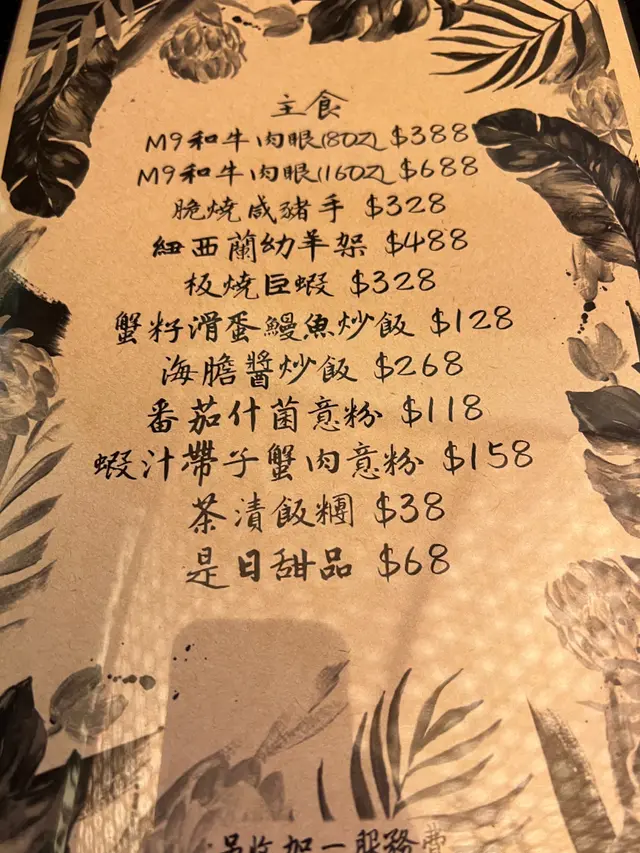 主食
M9和牛肉眼(8OZ) $388
M9和牛肉眼(16OZ) $688
脆燒咸豬手 $328
紐西蘭幼羊架 $488
板燒巨蝦 $328
蟹籽滑蛋鰻魚炒飯 $128
海膽醬炒飯 $268
番茄什菌意粉 $118
蝦汁帶子蟹肉意粉 $158
茶漬飯糰 $38
是日甜品 $68
另收加一服務費